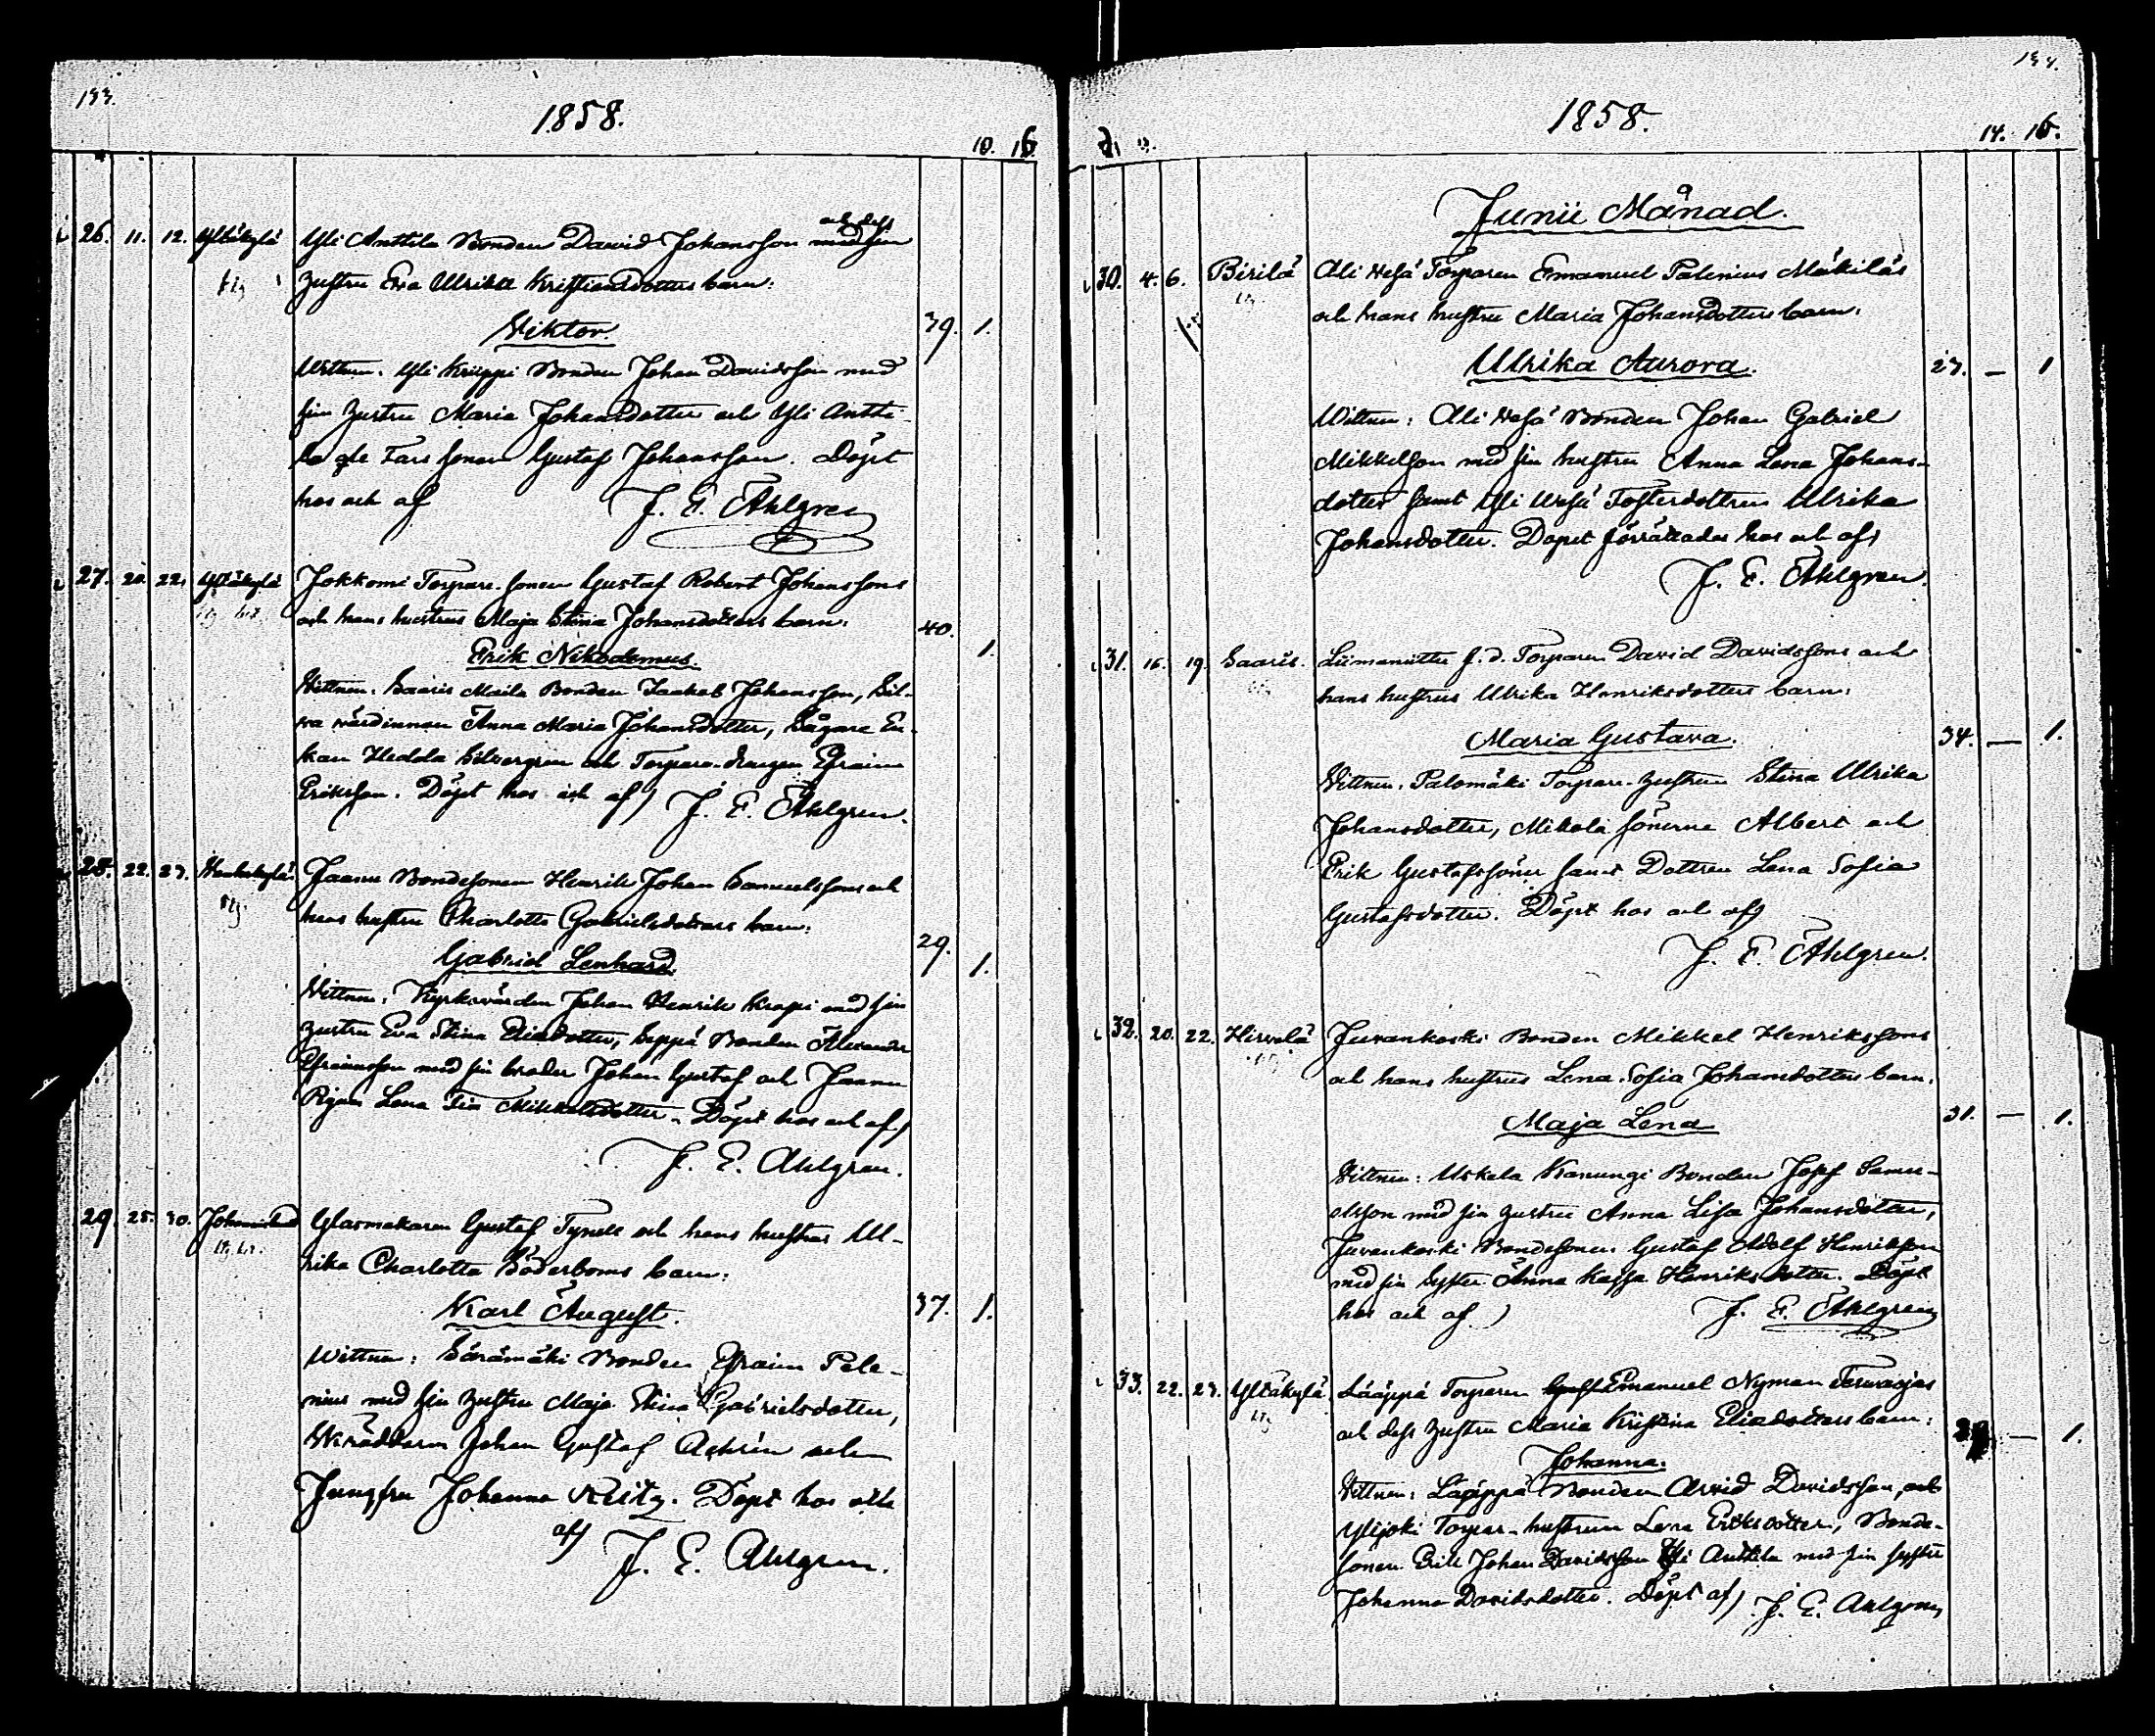 133.
1858.
10. 16.
26. 11. 12. Yltäkylä Yli Anttila Bonden David Johansson med sin
och dess
hustru Eva Ulrika Kristiansdotters barn:
Viktor. 39. 1.
Wittnen: Yli Krieppi Bonden Johan Davidsson med
sin hustru Maria Johansdotter och Yli Antti-
la Gustaf Johansson. Döpt
hos och af J. E. Ahlgren
27. 20. 22. Yltäkylä Jokkomi Torpare-sonen Gustaf Robert Johanssons
och hans hustrus Maja Stina Johansdotters barn: 40.
Erik Nikodemus. 1.
Wittnen: Saaris Maila Bonden Jaakob Johansson, Sil-
va värdinnan Anna Maria Johansdotter, Sågare En-
kan Hedda Silvergren och Torpare-drengen Efraim
Eriksson. Döpt hos och af) J. E. Ahlgren.
28. 22. 23. Jaanu Bondesonen Henrik Johan Samuelssons och
hans hustru Charlotta Gabrielsdotters barn: 29.
Gabriel Lenhard. 1.
Wittnen: Kyrkovärden Johan Henrik Krapi med sin
hustru Eva Stina Eliedotter, Seppä Bonden Alexander
Efraimsson med sin broder Johan Gustaf och Jaanu
Pigan Lena Fia Mikkelsdotter. Döpt hos och af)
J. E. Ahlgren.
29. 25. 30. Glasmakaren Gustaf Tynell och hans hustrus Ul-
rika Charlotta Söderboms barn:
Karl August. 37. 1.
Wittnen: Särämäki Bonden Efraim Pale-
nius med sin hustru Maja Stina Gabrielsdotter,
Skräddarn Johan Gustaf Achrén och
Jungfru Johanna Reitz. Döpt hos och
af) J. E. Ahlgren.
134.
1858.
14. 16.
Junii Månad.
30. 4. 6. Pirilä Ali Wesá Torparen Emanuel Palenius Mäkiläs
och hans hustru Maria Johansdotters barn:
Ulrika Aurora. 27. — 1
Wittnen: Ali Wesá Bonden Johan Gabriel
Mikkelson med sin hustru Anna Lena Johans-
dotter samt Yli Wesá Fosterdottren Ulrika
Johansdotter. Dopet förrättades hos och af)
J. E. Ahlgren.
31. 16. 19. Saaris. Liimanittu f. d. Torparen David Davidssons och
hans hustrus Ulrika Henriksdotters barn:
Maria Gustava. 34. — 1.
Wittnen: Palomäki Torpare-hustrun Stina Ulrika
Johansdotter, Mikola sönerne Albert och
Erik Gustafssöner samt Dottren Lena Sofia
Gustafsdotter. Döpt hos och af)
J. E. Ahlgren.
32. 20. 22. Hirvelä Juvankoski Bonden Mikkel Henrikssons
och hans hustrus Lena Sofia Johansdotters barn.
Maja Lena 31. — 1.
Wittnen: Uskela Karungi Bonden Josef Samu-
elsson med sin hustru Anna Lisa Johansdotter,
Juvankoski Bondesonen Gustaf Adolf Henriksson
med sin syster Anna Kajsa Henriksdotter. Döpt
hos och af) J. E. Ahlgren
33. 22. 23. Yltäkylä Lääppä Torparen Emanuel Nyman Tervaojas
och dess hustru Maria Kristina Eliedotters barn:
Johanna. — 1.
Wittnen: Lääppä Bonden Arvid Davidsson, och
Ylijoki Torpar-hustrun Lena Eriksdotter, Bonde-
sonen Erik Johan Davidsson Yli Anttila med sin syster
Johanna Davidsdotter. Döpt af) J. E. Ahlgren